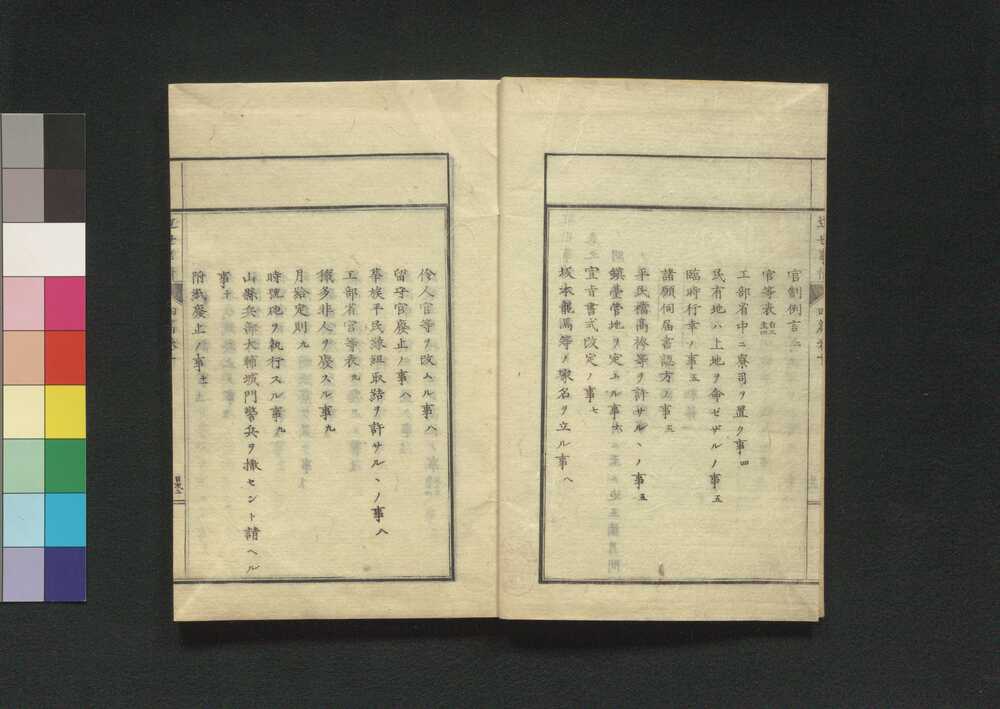 官制例言二
官等表自三至四
工部省中ニ寮司ヲ置ク事四
民有地ハ上地ヲ命ゼザルノ事五
臨時行幸ノ事五
諸願伺届書認方ノ事五
平民襠高袴等ヲ許サルヽノ事五
鎮臺管地ヲ定ムル事六
宣旨書式改定ノ事七
坂本龍馬等ノ家名ヲ立ル事八
伶人官等ヲ改ムル事八
留守官廢止ノ事八
華族平民縁組取結ヲ許サルヽノ事八
工部省官等表九
穢多非人ヲ廢スル事九
月給定則九
時號砲ヲ執行スル事九
山縣兵部大輔城門警兵ヲ撤セント請ヘル
事十
附弐廢止ノ事
近世事情
四篇卷十
目次二